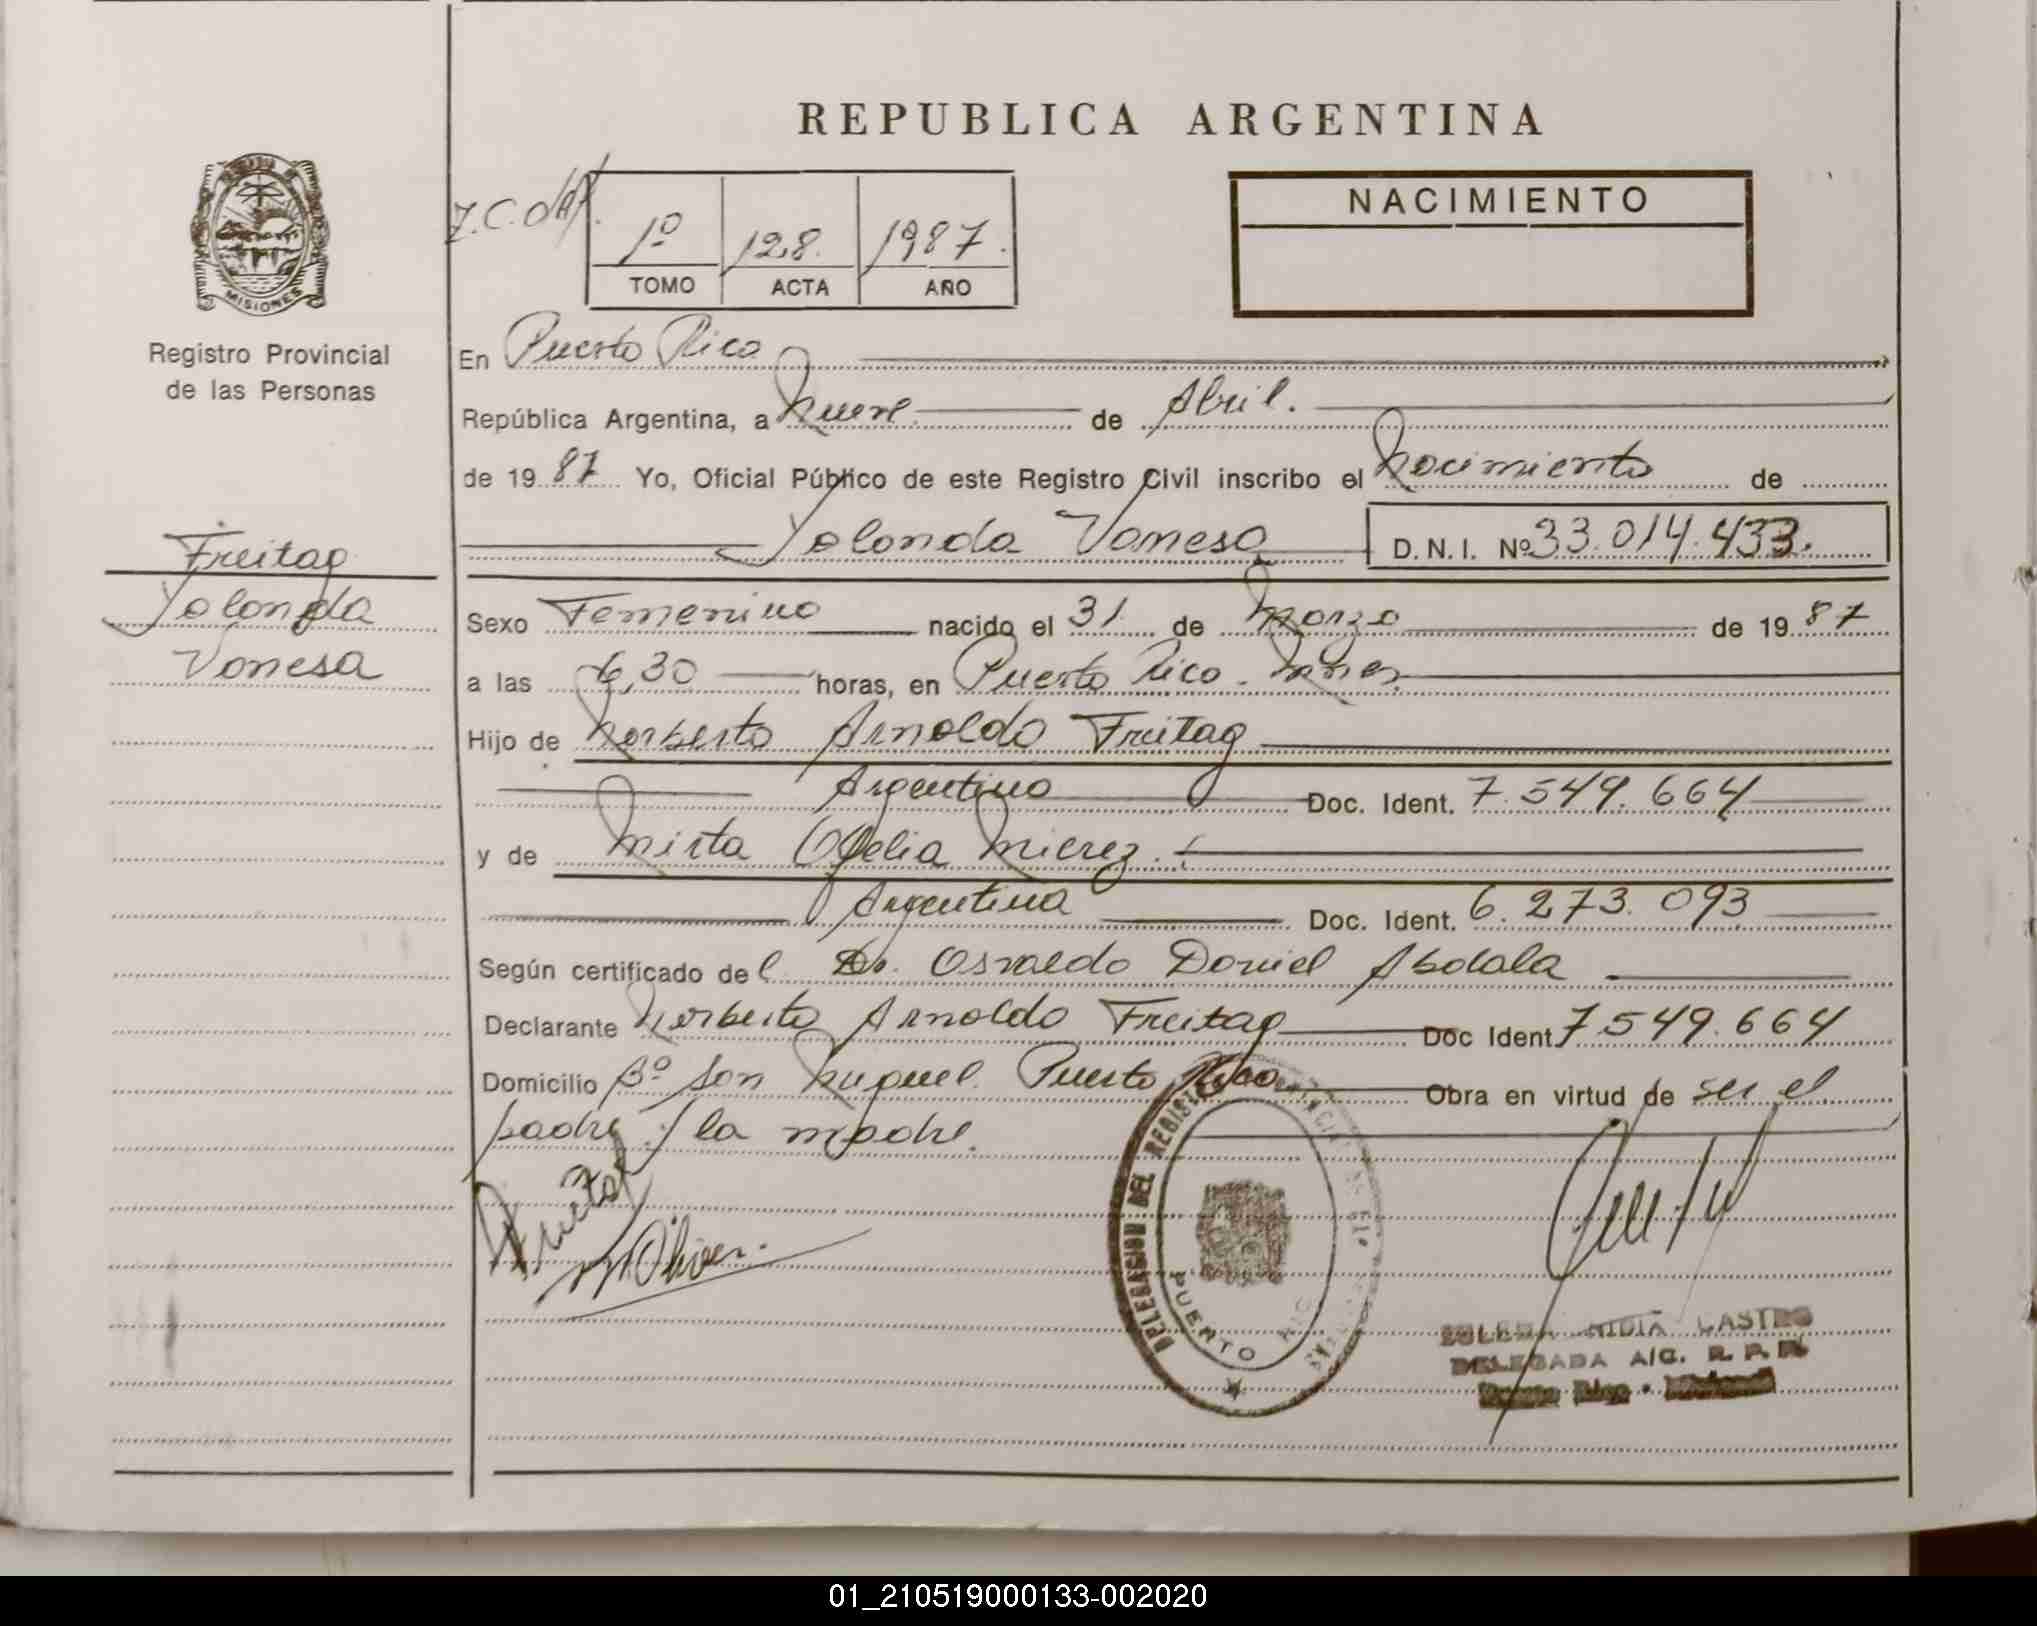 REPUBLICA ARGENTINA
MISIONES
Registro Provincial
de las Personas
1º 128. 1987.
TOMO ACTA AÑO
NACIMIENTO
En Puerto Rico
República Argentina, a Nueve de Abril.
de 1987 Yo, Oficial Público de este Registro Civil inscribo el Nacimiento de
Yolanda Vanesa D.N.I. Nº 33.014.433.
Freitag
Yolanda
Vanesa
Sexo Femenino nacido el 31 de Marzo de 1987
a las 6,30 horas, en Puerto Rico. Mnes.
Hijo de Norberto Arnoldo Freitag
Argentino Doc. Ident. 7.549.664
y de Mirta Ofelia
Argentina Doc. Ident. 6.273.093
Según certificado del Dr. Osvaldo Daniel Abdala
Declarante Norberto Arnoldo Freitag Doc Ident. 7.549.664
Domicilio Bº San Miguel. Puerto Rico Obra en virtud de ser el
padre y la madre.
Freitag
DELEGACION DEL
PUERTO
NIDIA CASTRO
DELEGADA A/C. R. P. P.
Puerto Rico - Misiones
01_210519000133-002020